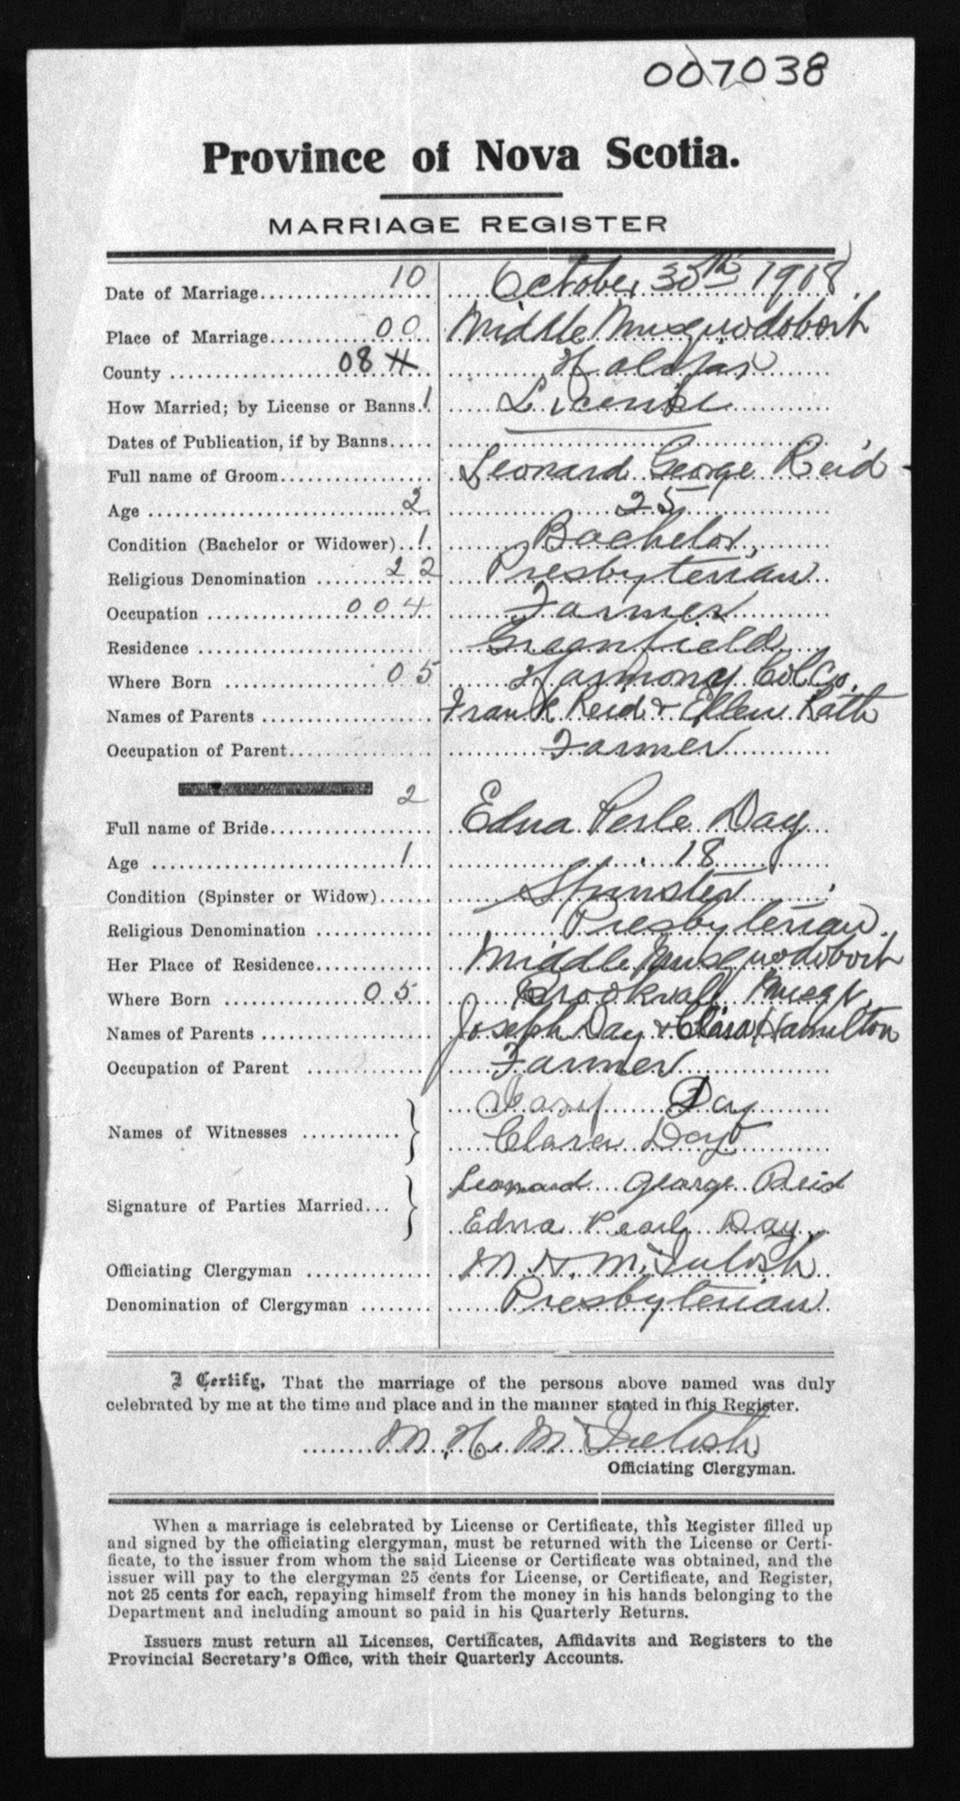 007038
Province of Nova Scotia.
MARRIAGE REGISTER
Date of Marriage 10 October 30th 1918
Place of Marriage 00 Middle Musquodoboit
County 08 H Halifax
How Married; by License or Banns. 1 License
Dates of Publication, if by Banns
Full name of Groom Leonard George Reid
Age 2 25
Condition (Bachelor or Widower) 1 Bachelor,
Religious Denomination 22 Presbyterian
Occupation 004 Farmer
Residence Greenfield
Where Born 05 Harmony Col Co.
Names of Parents Frank Reid & Ellen
Occupation of Parent Farmer
2
Full name of Bride Edna Perle Day
Age 1 18
Condition (Spinster or Widow) Spinster
Religious Denomination Presbyterian.
Her Place of Residence Middle Musquodoboit
Where Born 05
Names of Parents Joseph Day & Clara Hamilton
Occupation of Parent Farmer
Names of Witnesses Day
Clara Day
Signature of Parties Married Leonard George Reid
Edna Pearl Day
Officiating Clergyman M. H. McIntosh
Denomination of Clergyman Presbyterian
I Certify, That the marriage of the persons above named was duly
celebrated by me at the time and place and in the manner stated in this Register.
M. H. McIntosh
Officiating Clergyman.
When a marriage is celebrated by License or Certificate, this Register filled up
and signed by the officiating clergyman, must be returned with the License or Certi-
ficate, to the issuer from whom the said License or Certificate was obtained, and the
issuer will pay to the clergyman 25 cents for License, or Certificate, and Register,
not 25 cents for each, repaying himself from the money in his hands belonging to the
Department and including amount so paid in his Quarterly Returns.
Issuers must return all Licenses, Certificates, Affidavits and Registers to the
Provincial Secretary's Office, with their Quarterly Accounts.